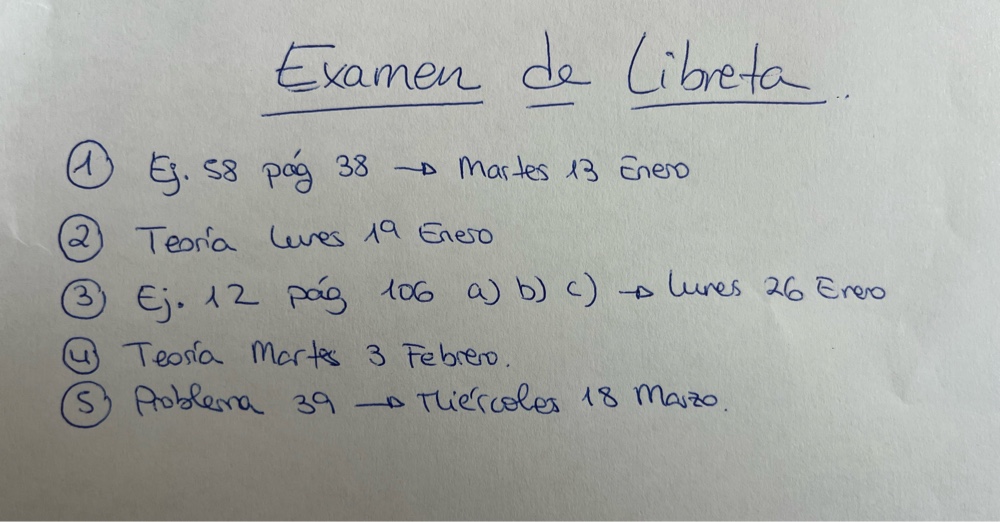 Examen de Libreta..
1 Ej. 58 pág 38 → Martes 13 Enero
2 Teoría lunes 19 Enero
3 Ej. 12 pág 106 a) b) c) → lunes 26 Enero
4 Teoría Martes 3 Febrero.
5 Problema 39 → Miércoles 18 Marzo.